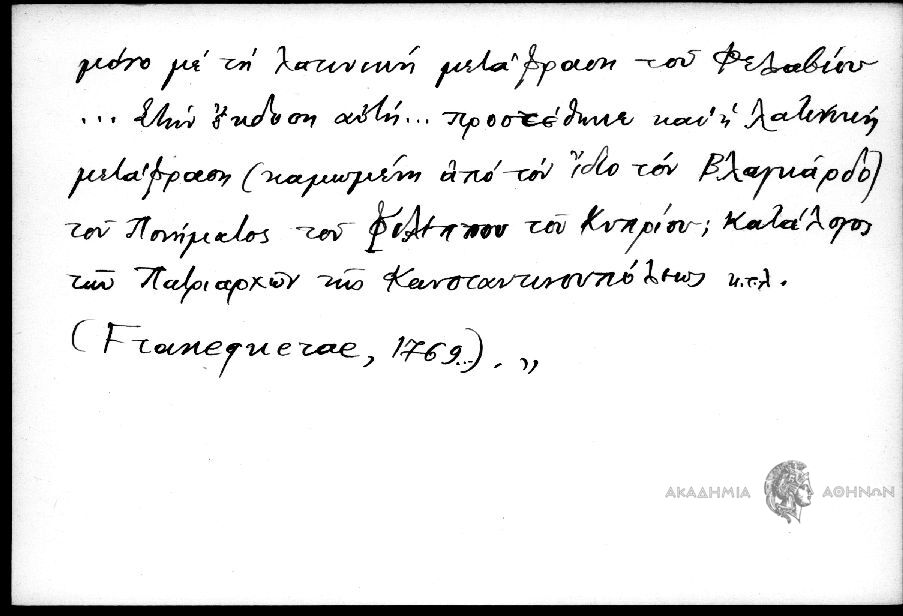 μόνο μέ τή λατινική μετάφραση τοῦ Φελαβίου
... Στήν ἔκδοση αὐτή... προστέθηκε καί ἡ λατινική
μετάφραση (καμωμένη ἀπό τόν ἴδιο τόν Βλαγκάρδο)
τοῦ Πονήματος τοῦ Φιλίππου τοῦ Κυπρίου; Κατάλογος
τῶν Πατριαρχῶν τῆς Κωνσταντινουπόλεως κ.τ.λ.
(Franequerae, 1769...). „
ΑΚΑΔΗΜΙΑ ΑΘΗΝΩΝ